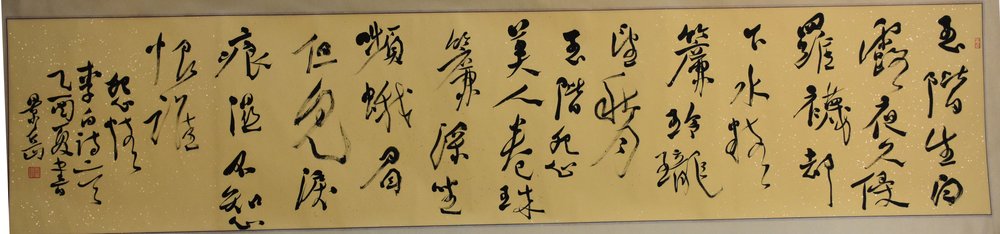 玉階生白
露夜久侵
羅襪却
下水精
簾玲瓏
望秋月
玉階怨
美人卷珠
簾深坐
嚬蛾眉
但見淚
痕濕不知心
恨誰
怨情
李白詩二首
乙酉夏書